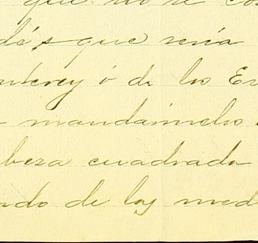 que no se co
que sería
nterey ó de los E
mandármelo
beza cuadrada
ndo de los med